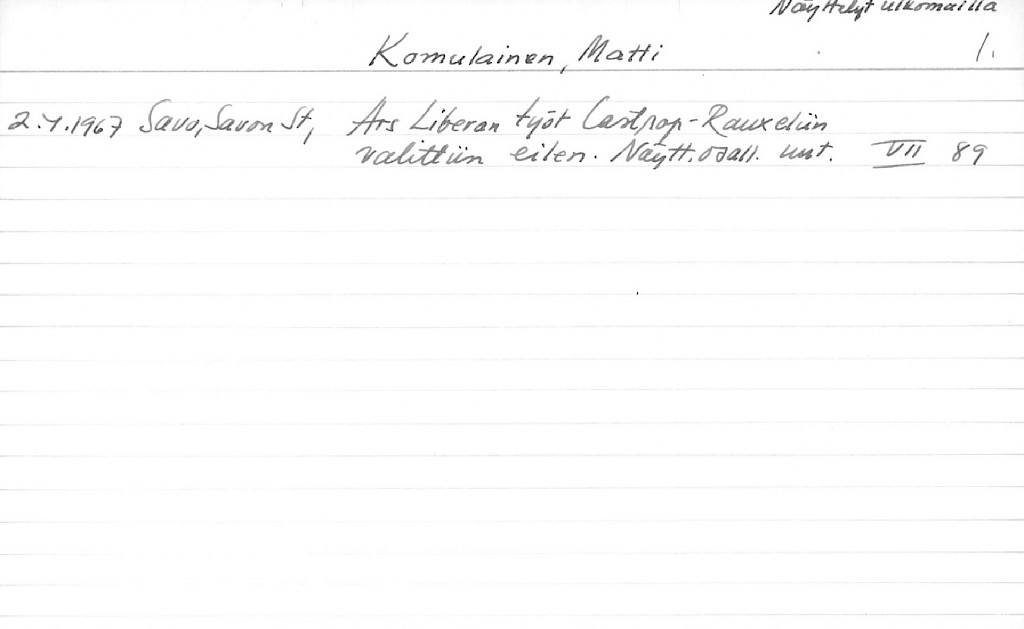 Näyttelyt ulkomailla
Komulainen, Matti 1.
2.4.1967 Savo, Savon St, Ars Liberan työt Castrop-Rauxeliin
valittiin eilen. Näytt. osall. mt. VII 89